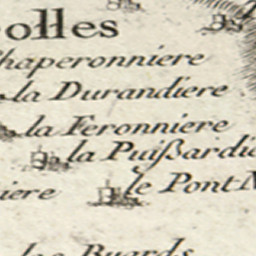 olles
haperonniere
la Durandiere
la Feronniere
la Puißardi
le Pont
iere
Ruards